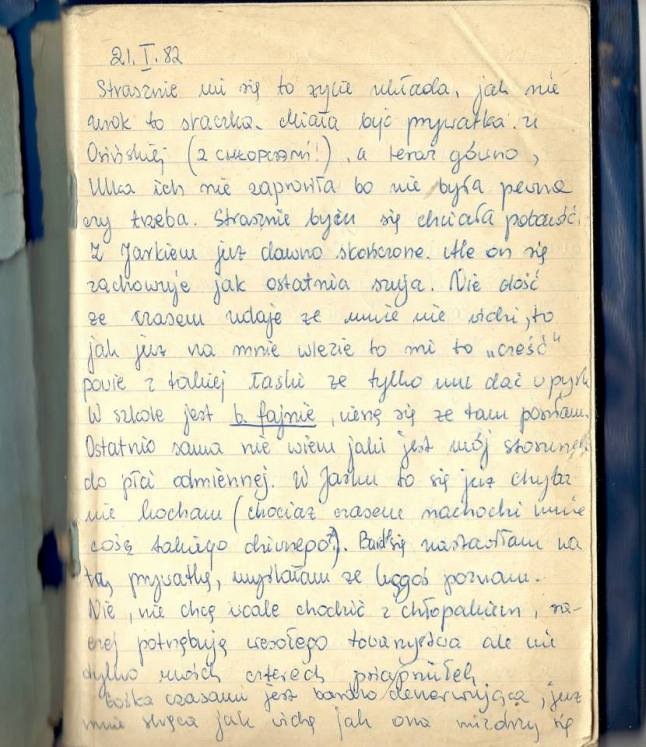 21.I.82
Strasznie mi się to życie układa, jak nie
urok to sraczka. Miała być prywatka u
Osińskiej (Z CHŁOPCAMI!), a teraz gówno,
Ulka ich nie zaprosiła bo nie była pewna
czy trzeba. Strasznie bym się chciała pobawić.
Z Jarkiem już dawno skończone. Ale on się
zachowuje jak ostatnia szuja. Nie dość
że czasem udaje że mnie nie widzi, to
jak już na mnie wlezie to mi to „cześć"
powie z takiej łaski że tylko mu dać w pysk
W szkole jest b. fajnie, cieszę się że tam poszłam.
Ostatnio sama nie wiem jaki jest mój stosunek
do płci odmiennej. W Jarku to się już chyba
nie kocham (chociaż czasem nachodzi mnie
coś takiego dziwnego?). Bardzo się nastawiłam na
tą prywatkę, myślałam że kogoś poznam.
Nie, nie chcę wcale chodzić z chłopakiem, ra-
czej potrzebuję wesołego towarzystwa ale nie
tylko moich czterech przyjaciółek.
Gośka czasami jest bardzo denerwująca, już
mnie skręca jak widzę jak ona mizdrzy się